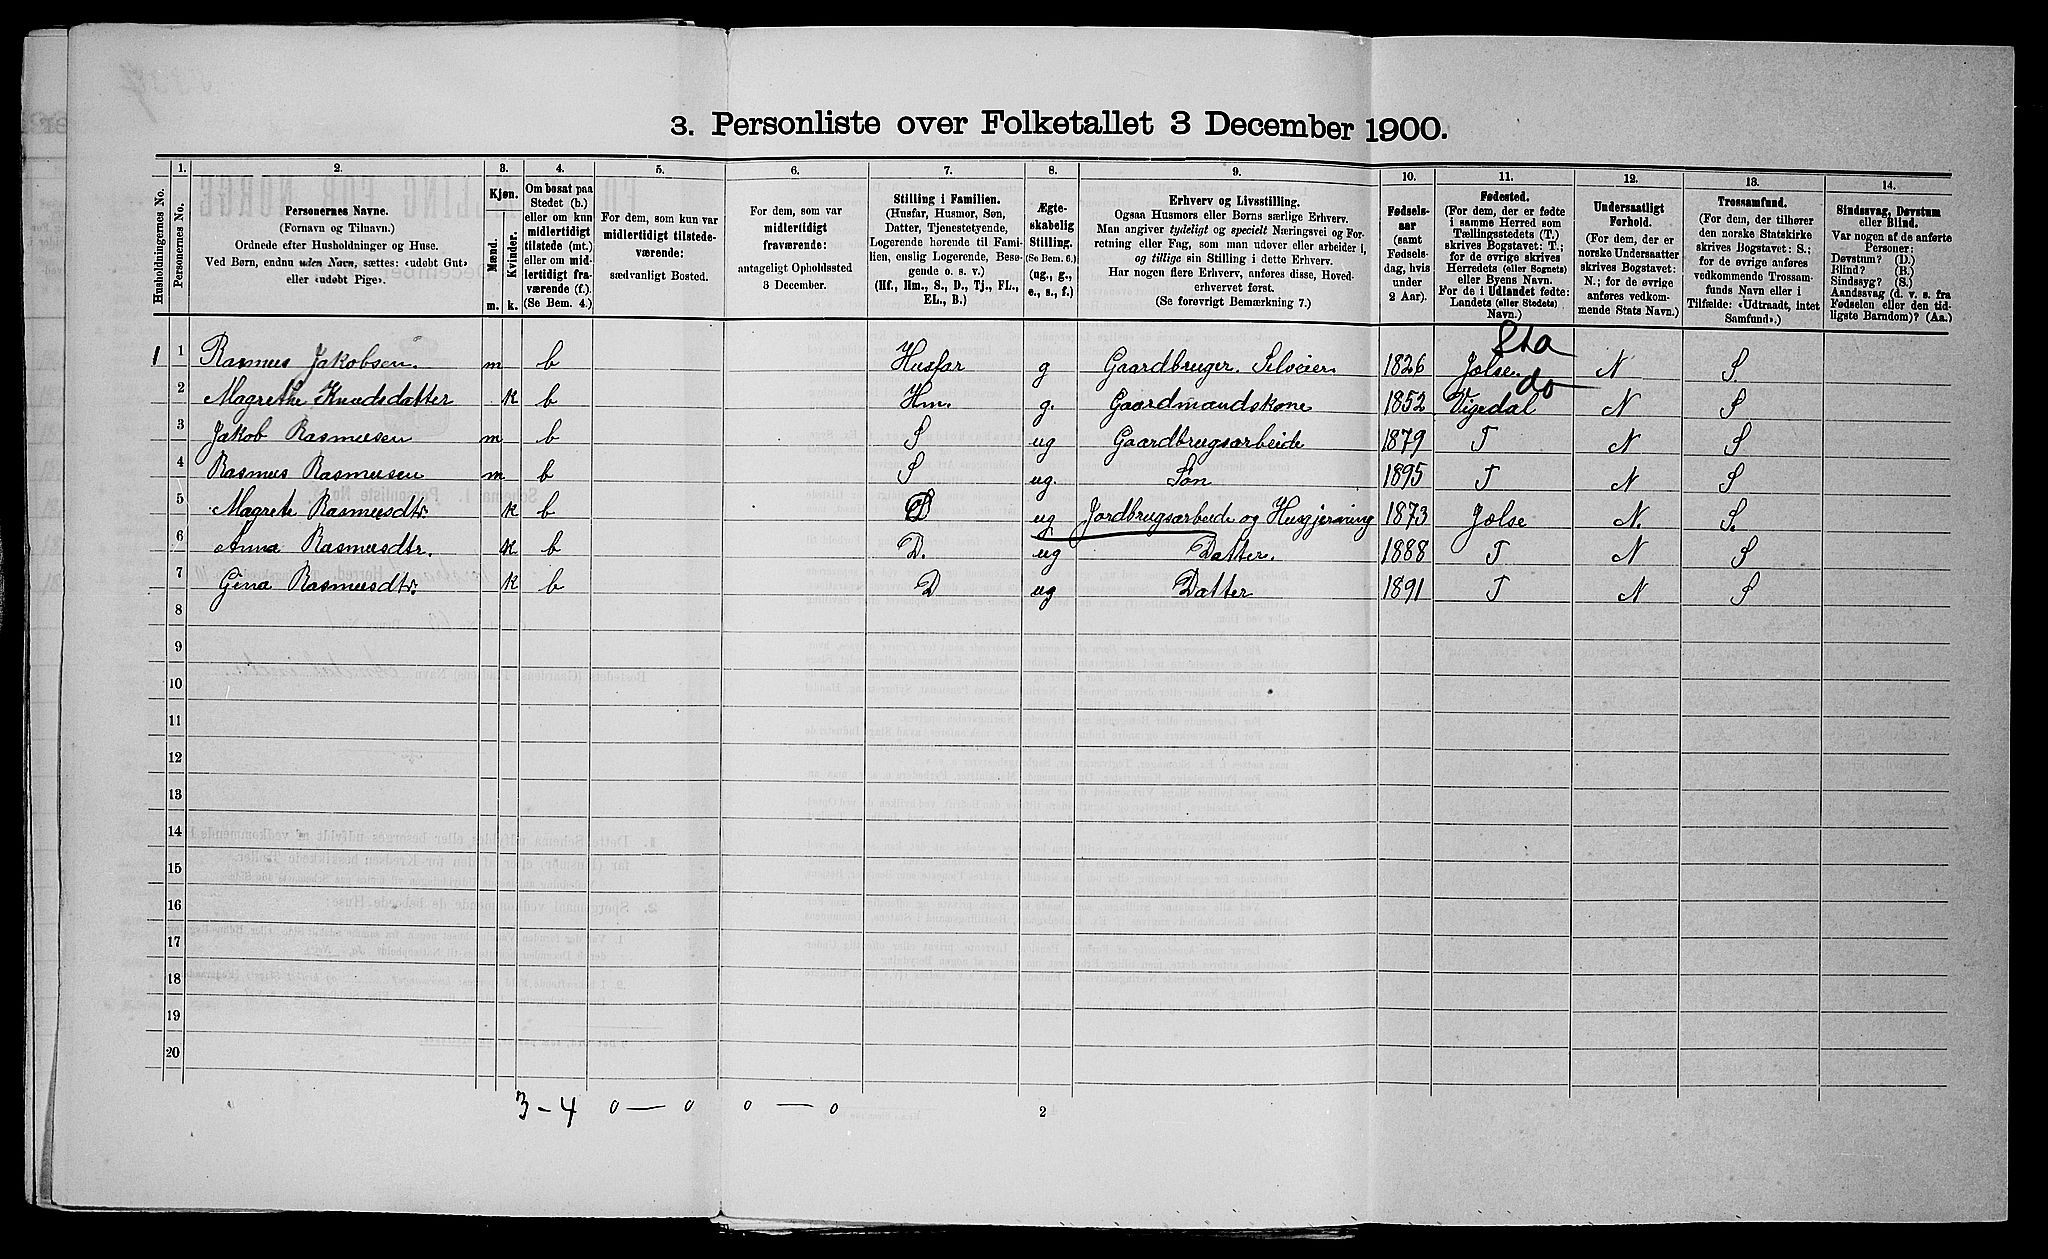 3. Personliste over Folketallet 3 December 1900.
Husholdningernes No.
1.
Personernes No.
2.
Personernes Navne.
(Fornavn og Tilnavn.)
Ordnede efter Husholdninger og Huse.
Ved Børn, endnu uden Navn, sættes: «udøbt Gut»
eller «udøbt Pige».
3.
Kjøn.
Mænd.
Kvinder.
m. k.
4.
Om bosat paa
Stedet (b.)
eller om kun
midlertidigt
tilstede (mt.)
eller om mid-
lertidigt fra-
værende (f.).
(Se Bem. 4.)
5.
For dem, som kun var
midlertidigt tilstede-
værende:
sædvanligt Bosted.
6.
For dem, som var
midlertidigt
fraværende:
antageligt Opholdssted
3 December.
7.
Stilling i Familien.
(Husfar, Husmor, Søn,
Datter, Tjenestetyende,
Logerende hørende til Fami-
lien, enslig Logerende, Besø-
gende o. s. v.)
(Hf., Hm., S., D., Tj., FL.,
EL., B.)
8.
Ægte-
skabelig
Stilling.
(Se Bem. 6.)
(ug., g.,
e., s., f.)
9.
Erhverv og Livsstilling.
Ogsaa Husmors eller Børns særlige Erhverv.
Man angiver tydeligt og specielt Næringsvei og For-
retning eller Fag, som man udøver eller arbeider i,
og tillige sin Stilling i dette Erhverv.
Har nogen flere Erhverv, anføres disse, Hoved-
erhvervet først.
(Se forøvrigt Bemærkning 7.)
10.
Fødsels-
aar
(samt
Fødsels-
dag, hvis
under
2 Aar).
11.
Fødested.
(For dem, der er fødte
i samme Herred som
Tællingsstedets (T.)
skrives Bogstavet: T.;
for de øvrige skrives
Herredets (eller Sognets)
eller Byens Navn.
For de i Udlandet fødte:
Landets (eller Stedets)
Navn.)
12.
Undersaatligt
Forhold.
(For dem, der er
norske Undersaatter
skrives Bogstavet:
N.; for de øvrige
anføres vedkom-
mende Stats Navn.)
13.
Trossamfund.
(For dem, der tilhører
den norske Statskirke
skrives Bogstavet: S.;
for de øvrige anføres
vedkommende Trossam-
funds Navn eller i
Tilfælde: «Udtraadt, intet
Samfund».)
14.
Sindssvag, Døvstum
eller Blind.
Var nogen af de anførte
Personer:
Døvstum? (D.)
Blind? (B.)
Sindssyg? (S.)
Aandssvag (d. v. s. fra
Fødselen eller den tid-
ligste Barndom)? (Aa.)
Sta
1 1 Rasmus Jakobsen. m b Husfar g Gaardbruger. Selveier 1826 Jølse. N S
do
2 Magrethe Knudsdatter k b Hm. g. Gaardmandskone 1852 Vigedal N S
3 Jakob Rasmussen m b S ug Gaardbrugsarbeide 1879 T N S
4 Rasmus Rasmussen m b S ug. Søn 1895 T N S
5 Magrete Rasmusdtr. k b D ug Jordbrugsarbeide og Husgjerning 1873 Jølse N. S.
6 Anna Rasmusdtr. k b D. ug Datter. 1888 T N S
7 Gina Rasmusdtr. k b D ug Datter 1891 T N S
8
9
10
11
12
13
14
15
16
17
18
19
20
3 - 4 0 — 0 0 — 0 2